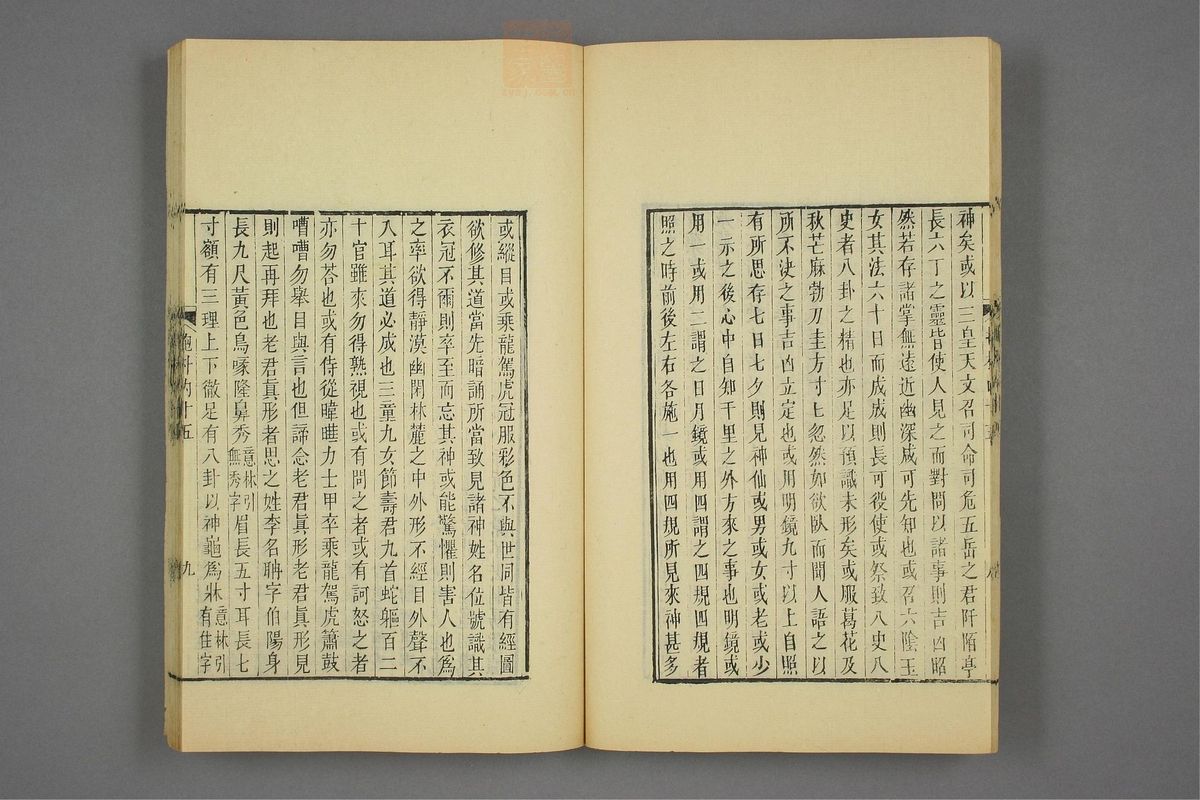 神矣或以三皇天文召司命司危五岳之君阡陌亭
長六丁之靈皆使人見之而對問以諸事則吉凶昭
然若存諸掌無遠近幽深咸可先知也或召六陰玉
女其法六十日而成成則長可役使或祭致八史八
史者八卦之精也亦足以預識未形矣或服葛花及
秋芒麻勃刀圭方寸匕忽然如欲臥而聞人語之以
所不決之事吉凶立定也或用明鏡九寸以上自照
有所思存七日七夕則見神仙或男或女或老或少
一示之後心中自知千里之外方來之事也明鏡或
用一或用二謂之日月鏡或用四謂之四規四規者
照之時前後左右各施一也用四規所見來神甚多
或縱目或乘龍駕虎冠服彩色不與世同皆有經圖
欲修其道當先暗誦所當致見諸神姓名位號識其
衣冠不爾則卒至而忘其神或能驚懼則害人也為
之率欲得靜漠幽閑林麓之中外形不經目外聲不
入耳其道必成也三童九女節壽君九首蛇軀百二
十官雖來勿得熟視也或有問之者或有訶怒之者
亦勿荅也或有侍從暐曄力士甲卒乘龍駕虎簫鼓
嘈嘈勿舉目與言也但諦念老君眞形老君眞形見
則起再拜也老君眞形者思之姓李名聃字伯陽身
長九尺黃色鳥喙隆鼻秀意林引無秀字眉長五寸耳長七
寸額有三理上下徹足有八卦以神龜為牀意林引有住字
抱朴內十五
九